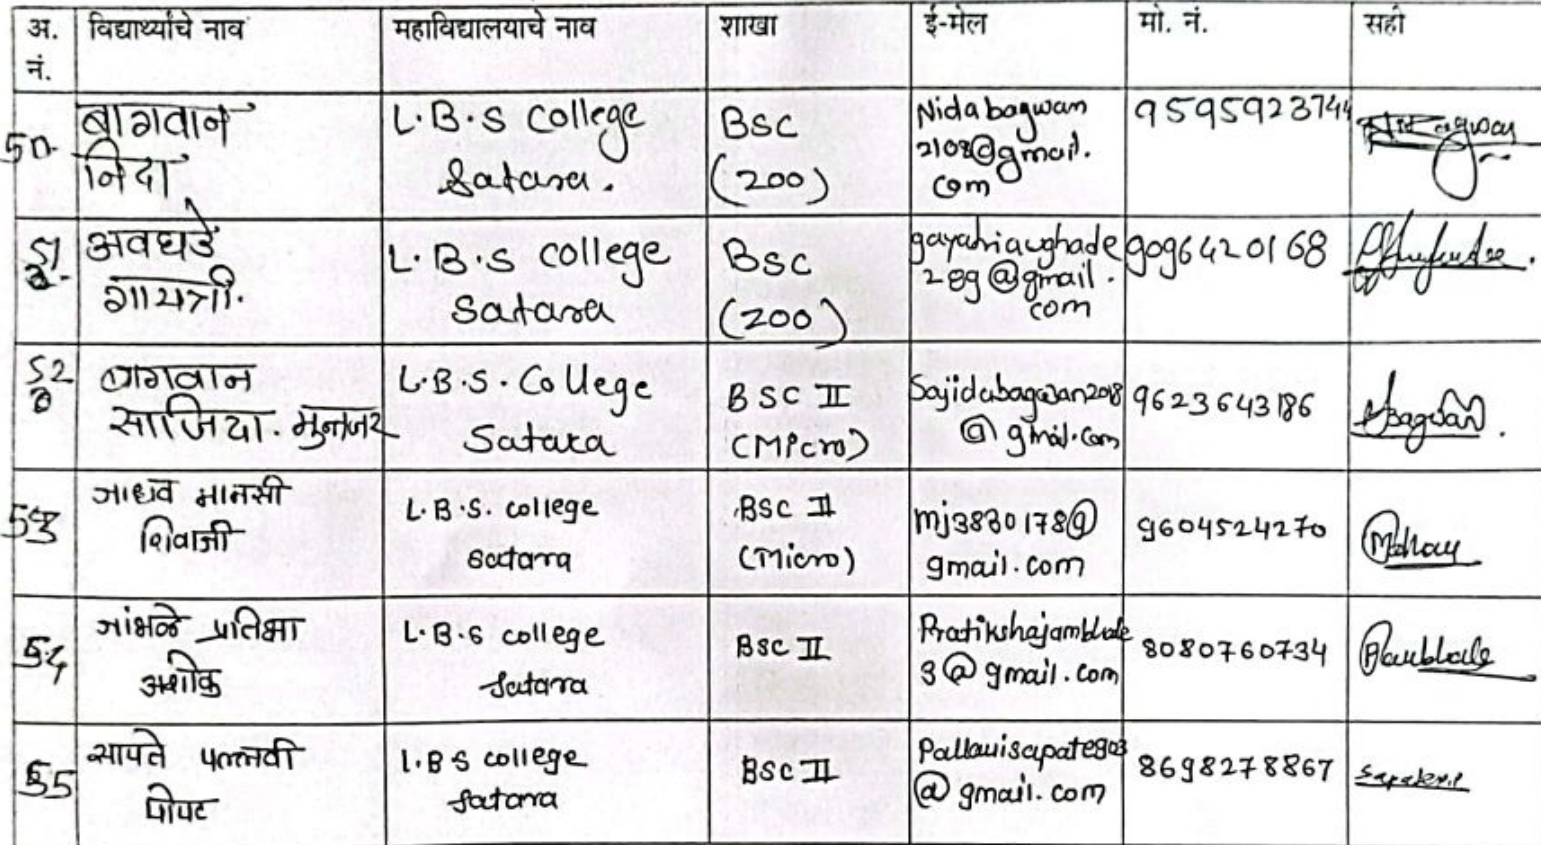 अ. नं. विद्यार्थ्याचे नाव महाविद्यालयाचे नाव शाखा ई-मेल मो. नं. सही
50. बागवान निदा L.B.S College Satara. BSC (200) Nidabagwan 2108@gmail. com 9595923744
51 अवघडे गायत्री. L.B.S college Satara BSC (200) gayatriavghade 289@gmail. com 9096420168
52 बागवान साजिदा. मुनाजर L.B.S. College Satara BSC II (Micro) Sajidabagwan2018 @gmail.com 9623643186 Sbagwan.
53 जाधव मानसी शिवाजी L.B.S. college satara BSC II (Micro) mj3830178@ gmail.com 9604524270
54 जांभळे प्रतिक्षा अशोक L.B.S college Satara BSC II Pratikshajambhale 3@gmail.com 8080760734
55 सापते पल्लवी पोपट L.B S college Satara BSC II @gmail.com 8698278867